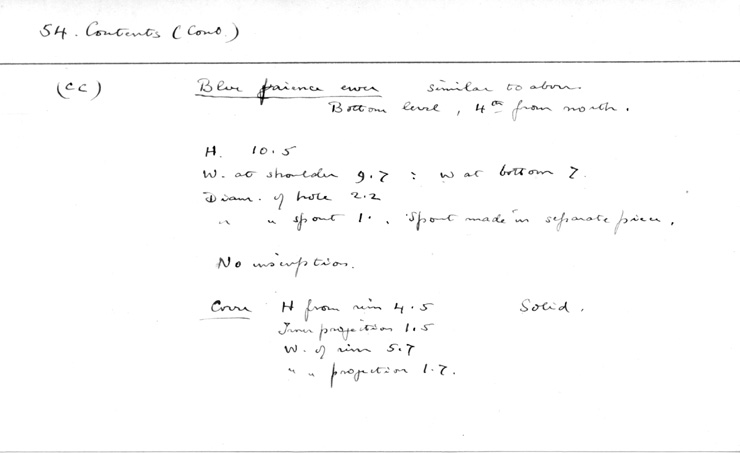 54. Contents (Cont.)
(cc) Blue faience ewer similar to above.
Bottom level, 4th from north.
H. 10.5
W. at shoulder 9.7 : W at bottom 7.
Diam. of hole 2.2
" " spout 1. . Spout made in separate piece.
No inscription.
Cover H from rim 4.5 Solid.
Inner projection 1.5
W. of rim 5.7
" " projection 1.7.